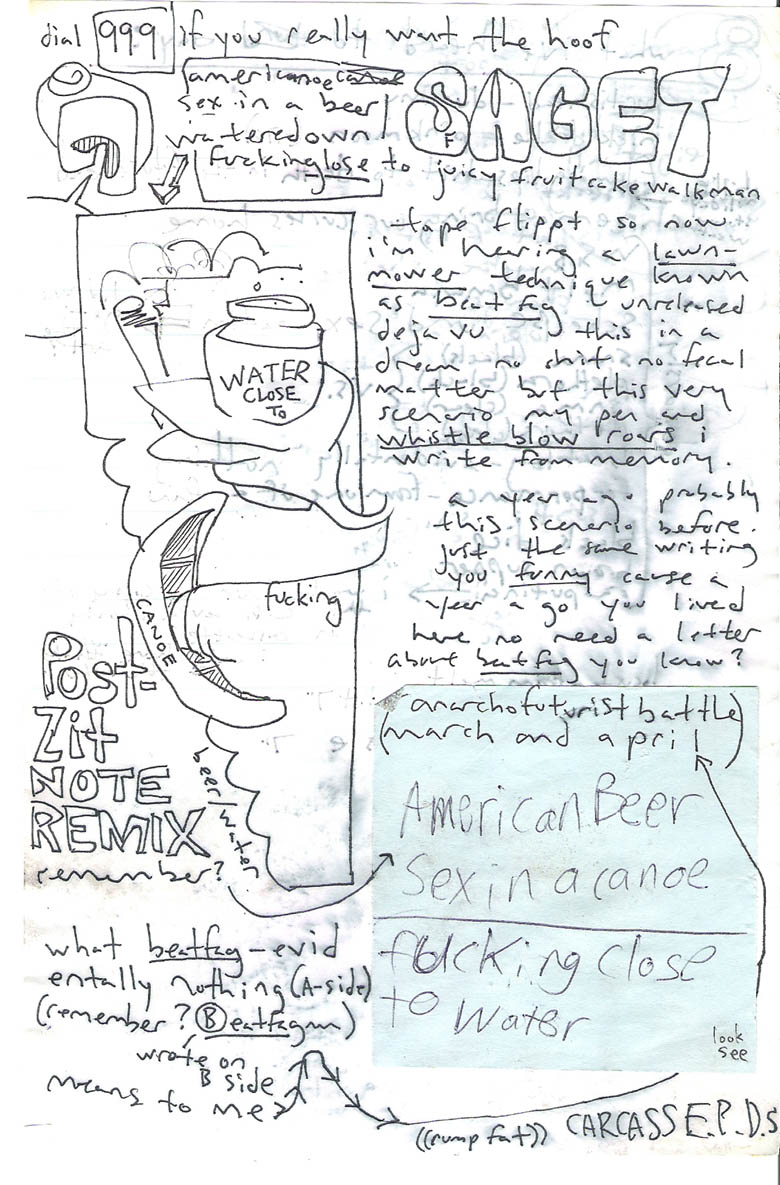 dial 999 if you really want the hoof
americanoe canoe
sex in a beer
watered down
fuckinglose to juicy fruitcake walkman
SAGET
F
tape flippt so now
i'm hearing a lawn-
mower technique known
as beat fag unreleased
deja vu this in a
dream no shit no fecal
matter but this very
scenario my pen and
whistle blow roars i
write from memory.
a year ago probably
this scenario before.
just the same writing
you funny cause a
year a go you lived
here no need a letter
about beatfag you know?
WATER
CLOSE
TO
CANOE
fucking
beer/water
Post-
Zit
NOTE
REMIX
remember?
(anarchofuturist battle)
(march and april)
American Beer
Sex in a canoe
fucking close
to water
look
see
what beatfag-evid
entally nothing (A-side)
(remember? Beatfagm)
wrote on
B side
means to me
((rump fat)) CARCASS E.P.D.S